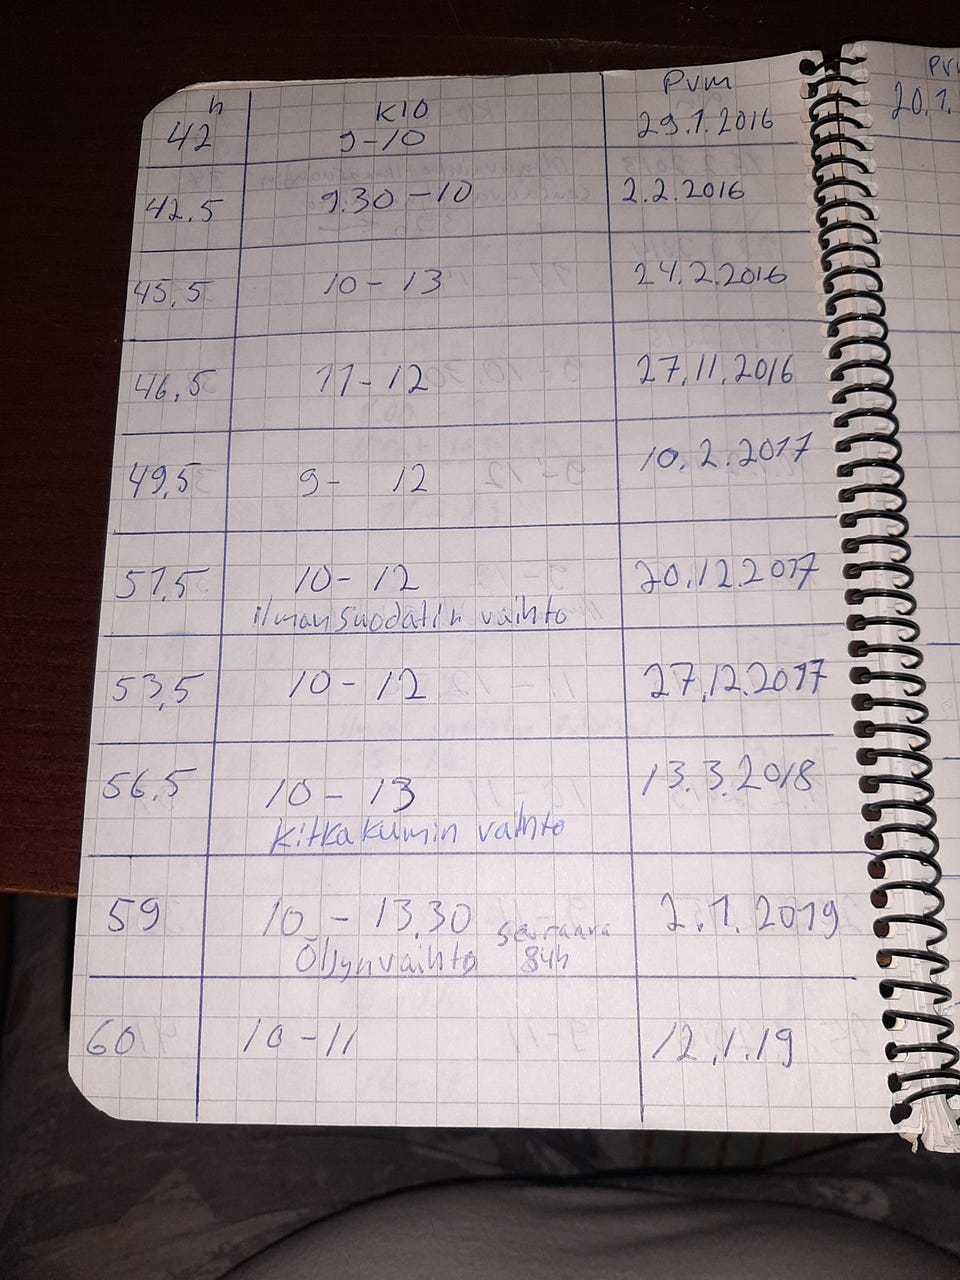 h klo Pvm
42 9-10 29.1.2016
42,5 9.30-10 2.2.2016
45,5 10-13 24.2.2016
46,5 11-12 27.11.2016
49,5 9- 12 10.2.2017
51,5 10-12 20.12.2017
ilmansuodatin vaihto
53,5 10-12 27.12.2017
56,5 10-13 13.3.2018
Kitkakumin vaihto
59 10-13,30 2.1.2019
Öljynvaihto seuraava 84h
60 10-11 12.1.19
20.1.